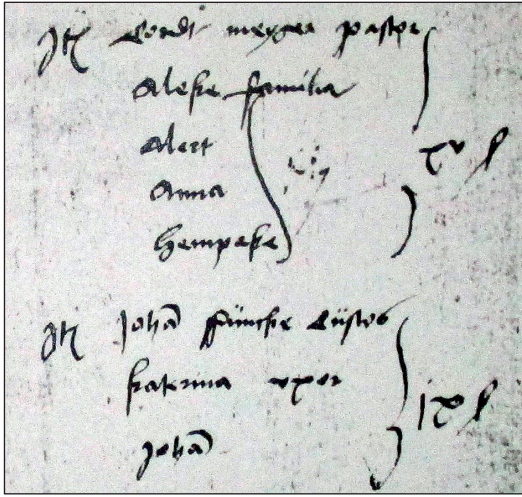 Jt Cordt meyger pastor
Aleke familia
Alert
Anna xv ß
Hempeke
Jt Johan füncke Cüstos
katerina vxor
Johan ix ß